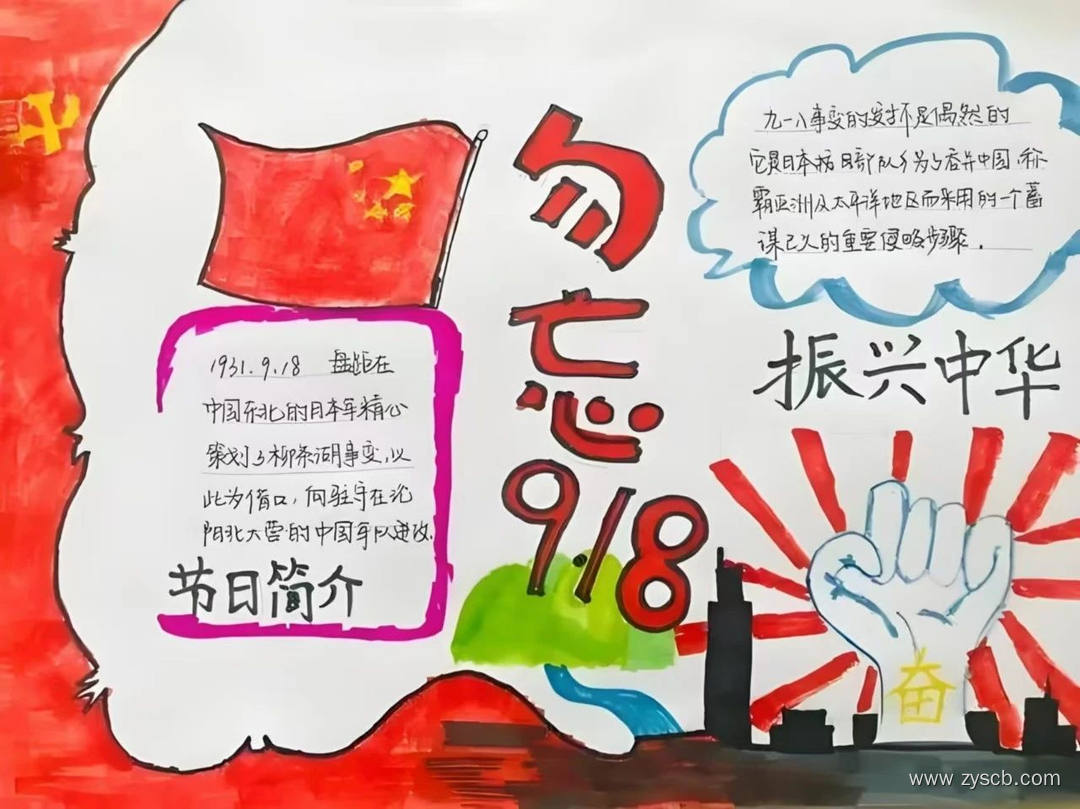 勿忘
9.18
1931.9.18 盘距在
中国东北的日本军精心
策划了柳条湖事变，以
此为借口，向驻守在沈
阳北大营的中国军队进攻.
节日简介
九一八事变的发才不是偶然的
它是日本 为了吞并中国，称
霸亚洲及太平洋地区而采用的一个蓄
谋已久的重要侵略步骤.
振兴中华
奋
www.zyscb.com